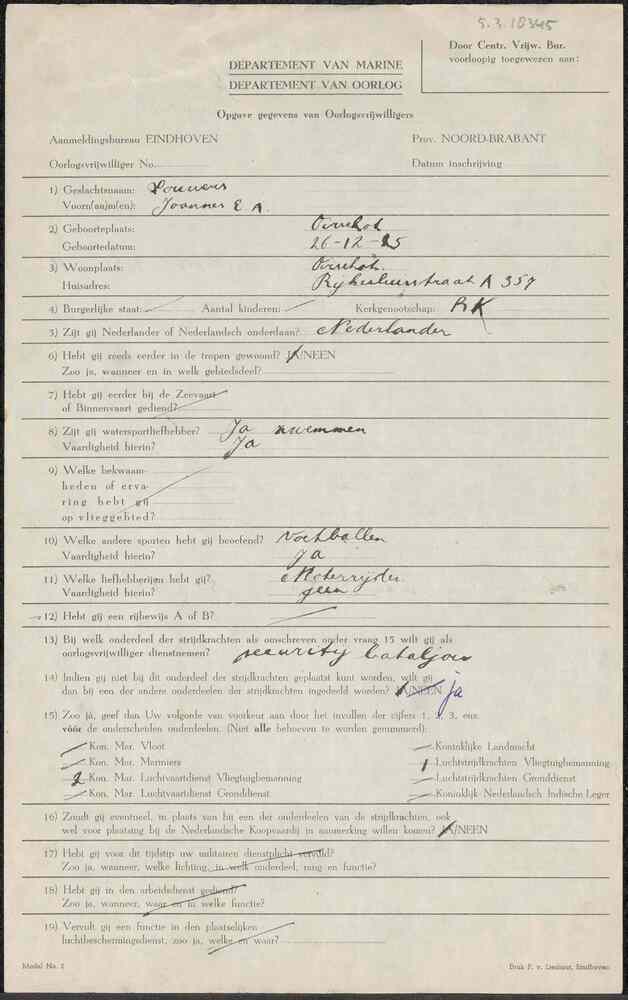 5.3.18345
Door Centr. Vrijw. Bur.
voorloopig toegewezen aan:
DEPARTEMENT VAN MARINE
DEPARTEMENT VAN OORLOG
Opgave gegevens van Oorlogsvrijwilligers
Aanmeldingsbureau EINDHOVEN Prov. NOORD-BRABANT
Oorlogsvrijwilliger No. Datum inschrijving
1) Geslachtsnaam:
Voorn(aa)m(en): Joannes E A.
2) Geboorteplaats: Oirschot
Geboortedatum: 26-12-25
3) Woonplaats: Oirschot
Huisadres: A 357
4) Burgerlijke staat: Aantal kinderen: Kerkgenootschap: RK
5) Zijt gij Nederlander of Nederlandsch onderdaan? Nederlander
6) Hebt gij reeds eerder in de tropen gewoond? JA/NEEN
Zoo ja, wanneer en in welk gebiedsdeel?
7) Hebt gij eerder bij de Zeevaart
of Binnenvaart gediend?
8) Zijt gij watersportliefhebber? Ja zwemmen
Vaardigheid hierin? Ja
9) Welke bekwaam-
heden of erva-
ring hebt gij
op vlieggebied?
10) Welke andere sporten hebt gij beoefend? Voetballen
Vaardigheid hierin? ja
11) Welke liefhebberijen hebt gij? Moterrijden
Vaardigheid hierin? geen
12) Hebt gij een rijbewijs A of B?
13) Bij welk onderdeel der strijdkrachten als omschreven onder vraag 15 wilt gij als
oorlogsvrijwilliger dienstnemen? security bataljon
14) Indien gij niet bij dit onderdeel der strijdkrachten geplaatst kunt worden, wilt gij
dan bij een der andere onderdeelen der strijdkrachten ingedeeld worden? JA/NEEN ja
15) Zoo ja, geef dan Uw volgorde van voorkeur aan door het invullen der cijfers 1, 2, 3, enz.
vóór de onderscheiden onderdeelen. (Niet alle behoeven te worden genummerd).
Kon. Mar. Vloot Koninklijke Landmacht
Kon. Mar. Mariniers 1 Luchtstrijdkrachten Vliegtuigbemanning
2 Kon. Mar. Luchtvaartdienst Vliegtuigbemanning Luchtstrijdkrachten Gronddienst
Kon. Mar. Luchtvaartdienst Gronddienst Koninklijk Nederlandsch Indische Leger
16) Zoudt gij eventueel, in plaats van bij een der onderdeelen van de strijdkrachten, ook
wel voor plaatsing bij de Nederlandsche Koopvaardij in aanmerking willen komen? JA/NEEN
17) Hebt gij voor dit tijdstip uw militairen dienstplicht vervuld?
Zoo ja, wanneer, welke lichting, in welk onderdeel, rang en functie?
18) Hebt gij in den arbeidsdienst gediend?
Zoo ja, wanneer, waar en in welke functie?
19) Vervult gij een functie in den plaatselijken
luchtbeschermingsdienst, zoo ja, welke en waar?
Model No. 2 Druk F. v. Lieshout, Eindhoven